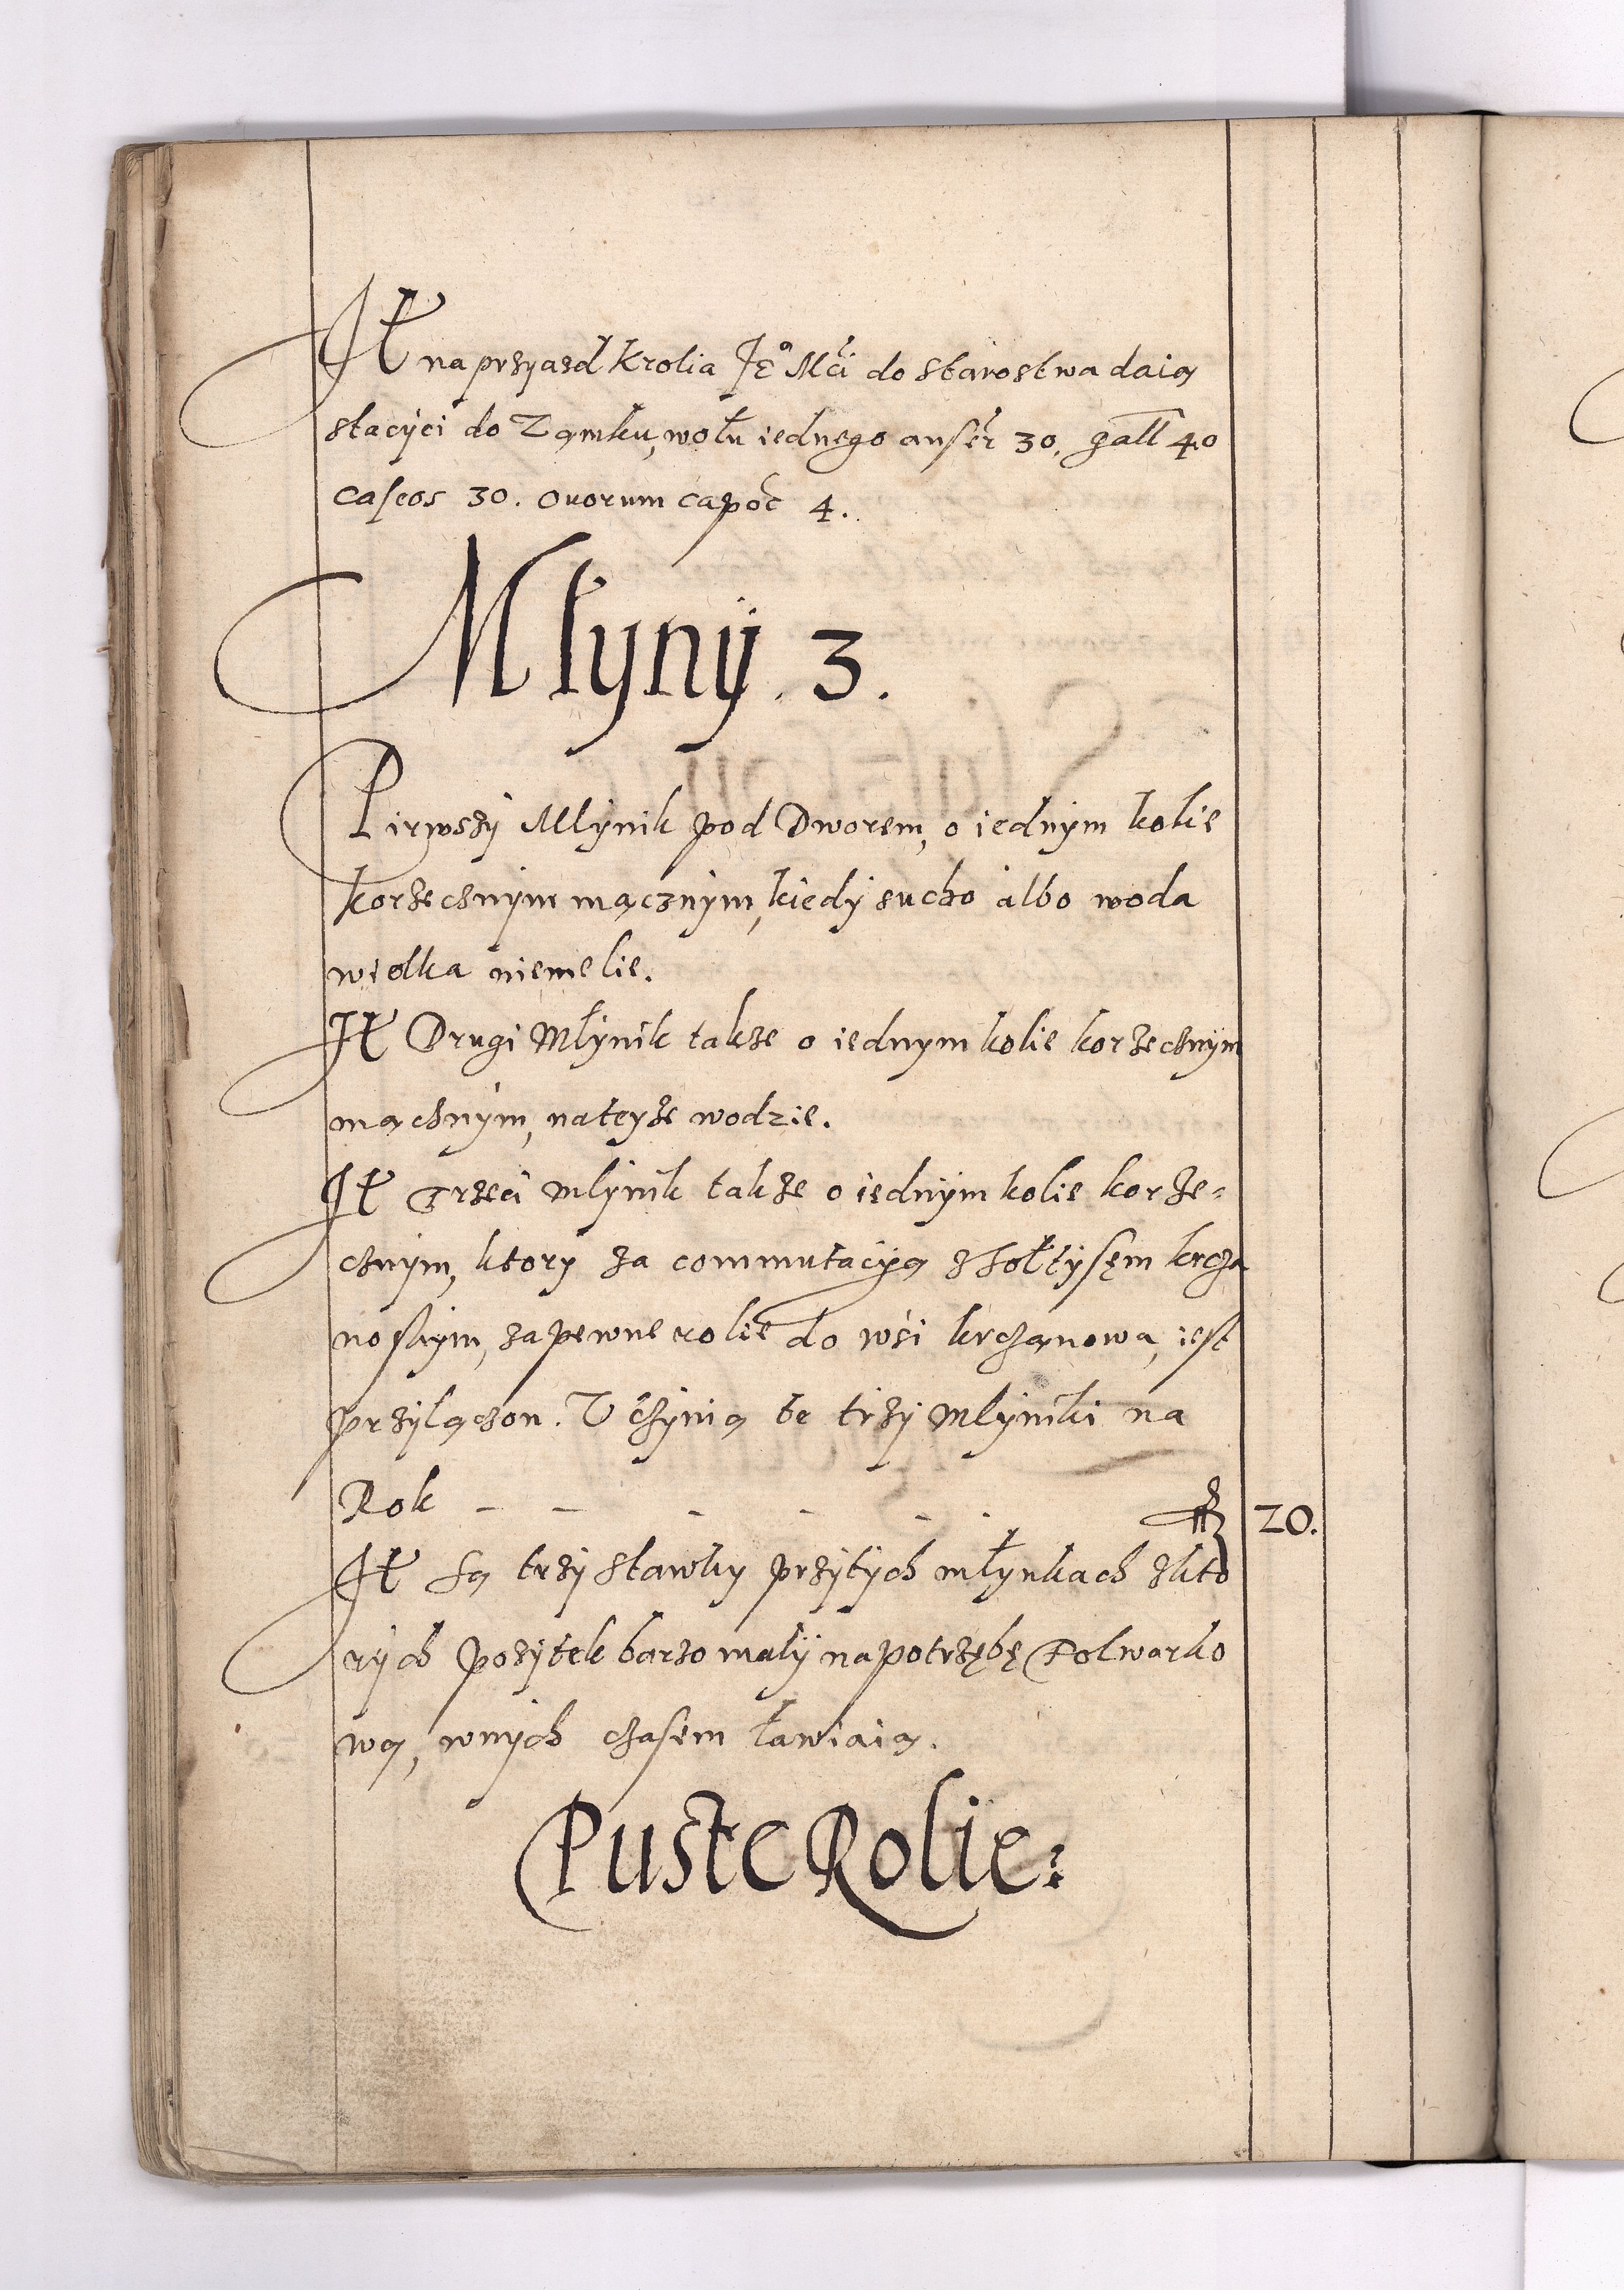 It na przyazd Krolia Je° Mći do starostwa daią
stacÿei do Zamku, wołu iednego anser 30. gall 40
caseos 30. ouorum capoc 4.
Młynÿ. 3.
Pirwszÿ Młÿnik pod Dworem, o iednÿm kolie
korzecznÿm mącznÿm, kiedÿ sucho albo woda
wiolka niemelie.
It Drugi Młÿnik takze o iednÿm kolie korzecznÿm
mącznÿm, nateyze wodzie.
It Trzeci młÿnik takze o iednÿm kolie korze-
cznÿm, ktory za commutacÿą z Sołtÿsęm krcza
noskym, zapewne rolie do wśi krczanowa, iest
przÿlączon. Uczÿnią te trzÿ młÿniki na
Rok - - - - - - 20.
It Są trzÿ stawky przÿtÿch młÿnkach zkto
rÿch pozÿtek barzo małÿ napotrzębę Folwarko
wą, wnÿch czasem ławiaią.
Puste Rolie: